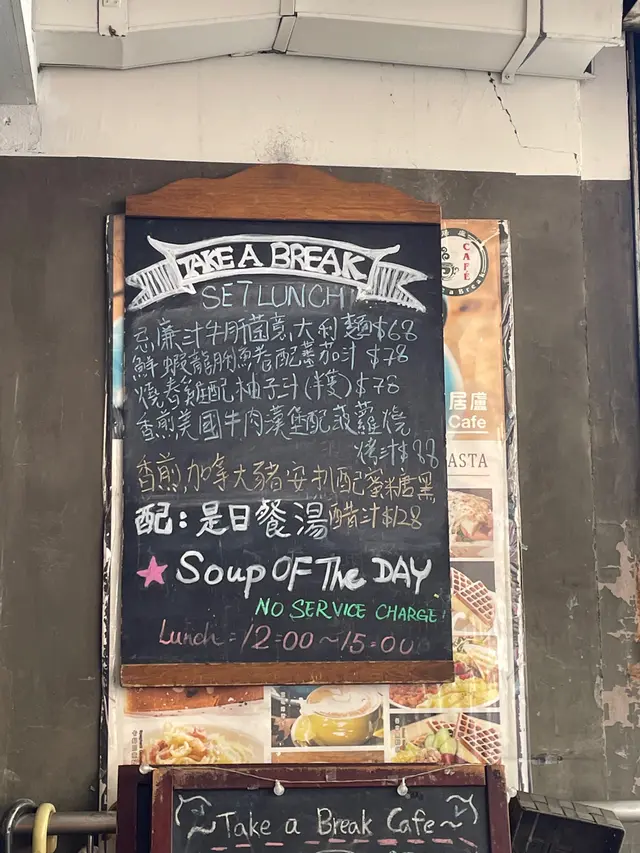 TAKE A BREAK
SET LUNCH!
忌廉汁牛肝菌意大利麵$68
鮮蝦龍脷魚卷配蕃茄汁 $78
燒春雞配柚子汁(半隻)$78
香煎美國牛肉漢堡配菠蘿燒
烤汁$88
香煎加拿大豬安扒配蜜糖黑
醋汁$128
配:是日餐湯
Soup OF The DAY
NO SERVICE CHARGE
Lunch = 12=00~15=00
CAFÉ
居廬
Cafe
ASTA
~Take a Break Cafe~